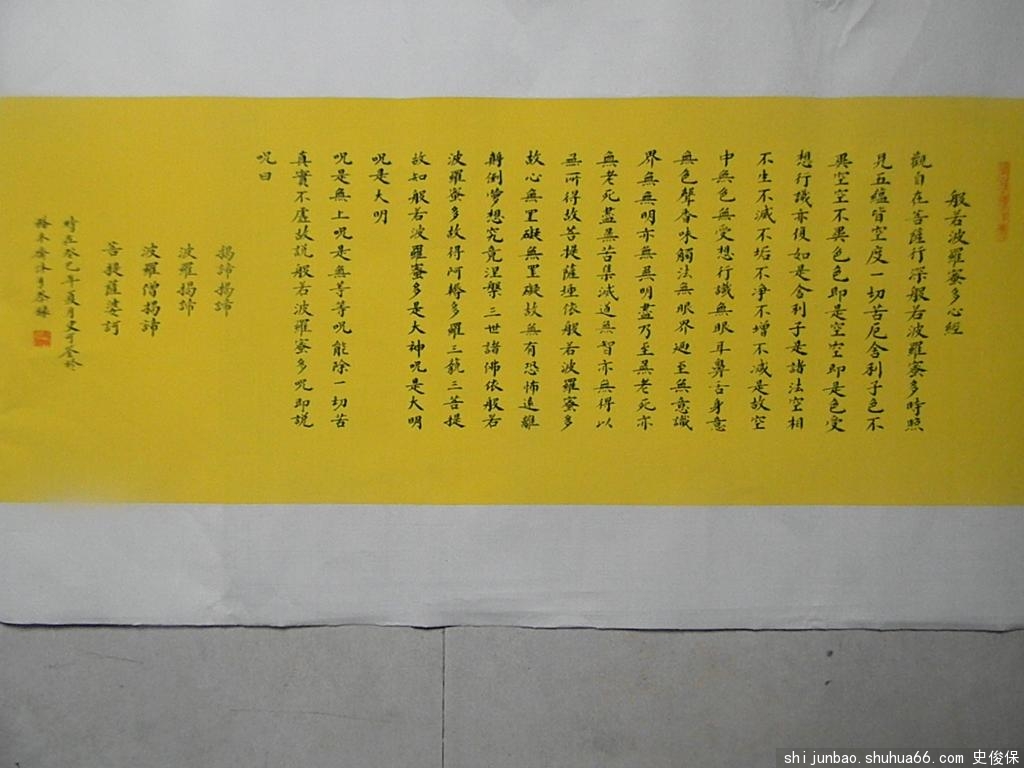 般若波羅蜜多心經
觀自在菩薩行深般若波羅蜜多時照
見五蘊皆空度一切苦厄舍利子色不
異空空不異色色即是空空即是色受
想行識亦復如是舍利子是諸法空相
不生不滅不垢不淨不增不減是故空
中無色無受想行識無眼耳鼻舌身意
無色聲香味觸法無眼界迺至無意識
界無無明亦無無明盡乃至無老死亦
無老死盡無苦集滅道無智亦無得以
無所得故菩提薩埵依般若波羅蜜多
故心無罣礙無罣礙故無有恐怖遠離
顛倒夢想究竟涅槃三世諸佛依般若
波羅蜜多故得阿耨多羅三藐三菩提
故知般若波羅蜜多是大神呪是大明
呪是大明
呪是無上呪是無等等呪能除一切苦
真實不虛故説般若波羅蜜多呪即説
呪曰
揭諦揭諦
波羅揭諦
波羅僧揭諦
菩提薩婆訶
時在癸巳年夏月史可奎於
木齋沐手恭錄
shijunbao.shuhua66.com 史俊保